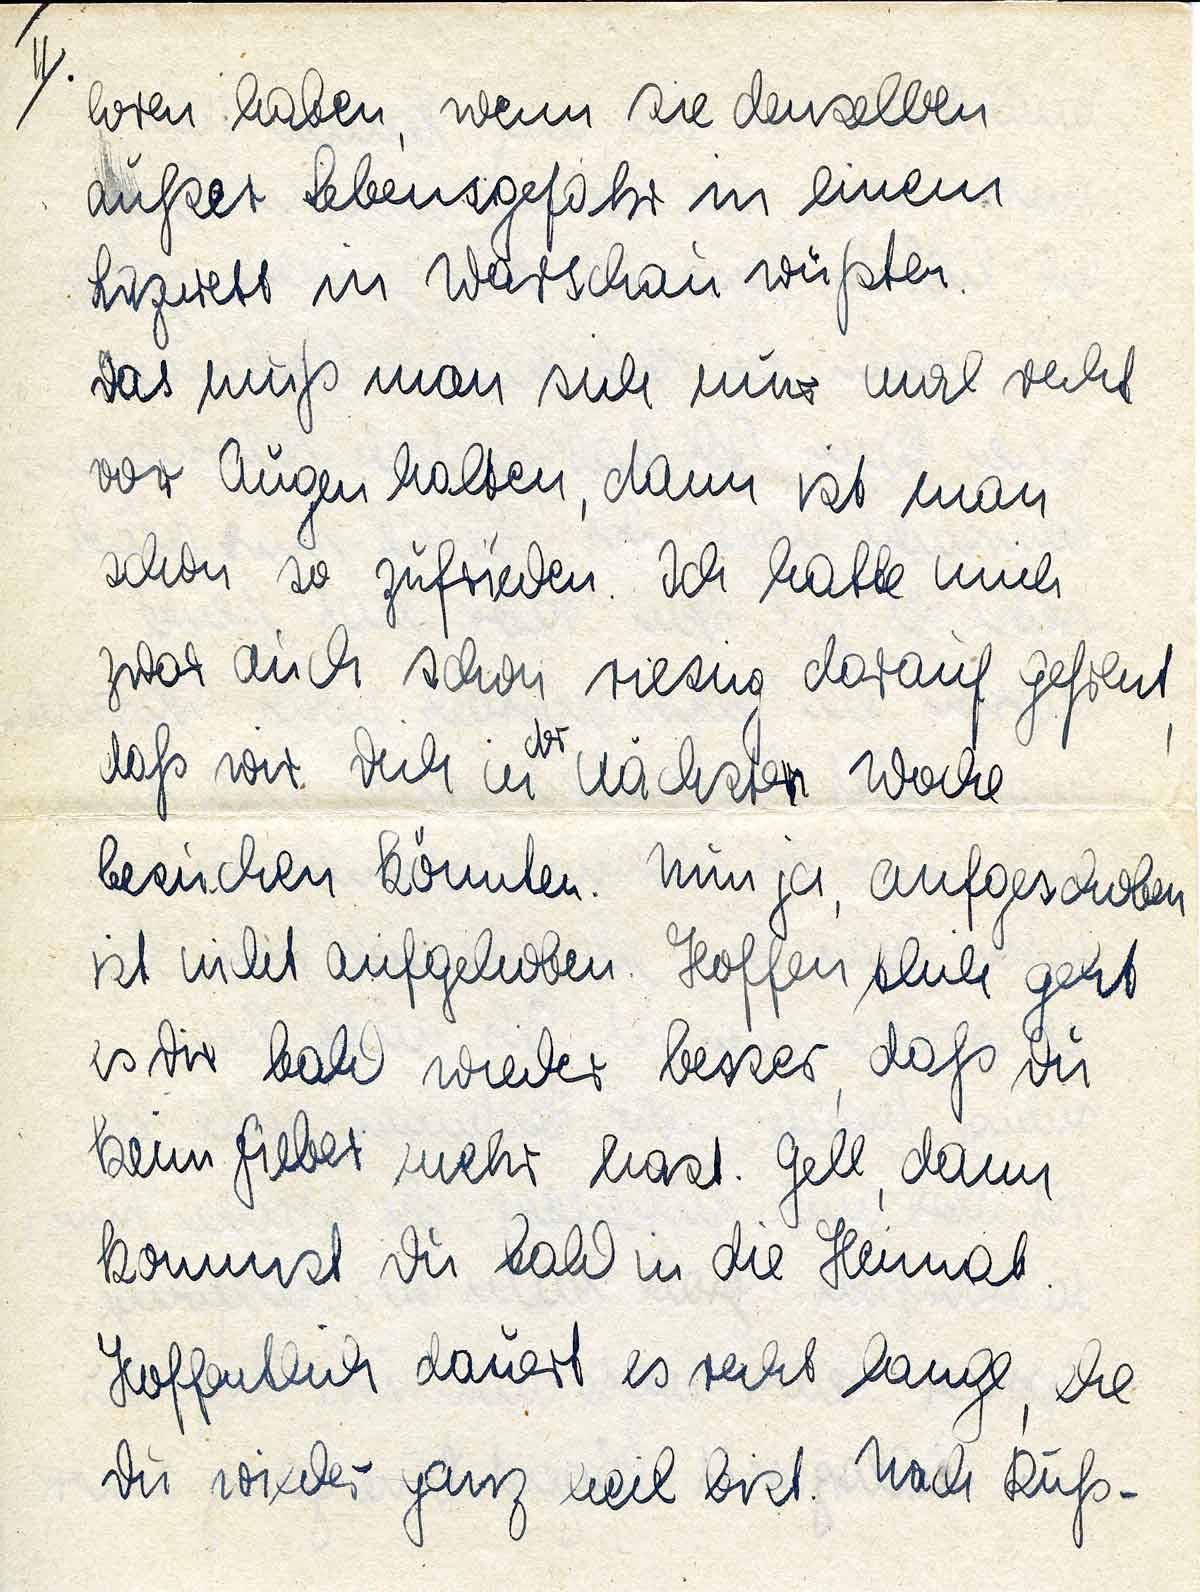 II.
loren haben, wenn sie denselben
außer Lebensgefahr in einem
Lazarett in Warschau wüßten.
Das muß man sich nur mal recht
vor Augen halten, dann ist man
schon so zufrieden. Ich hatte mich
zwar auch schon riesig darauf gefreut,
daß wir Dich in der nächsten Woche
besuchen könnten. Nun ja, aufgeschoben
ist nicht aufgehoben. Hoffentlich geht
es Dir bald wieder besser, daß Du
kein Fieber mehr hast. Gell, dann
kommst Du bald in die Heimat.
Hoffentlich dauert es recht lange, ehe
Du wieder ganz heil bist. Nach Ruß-